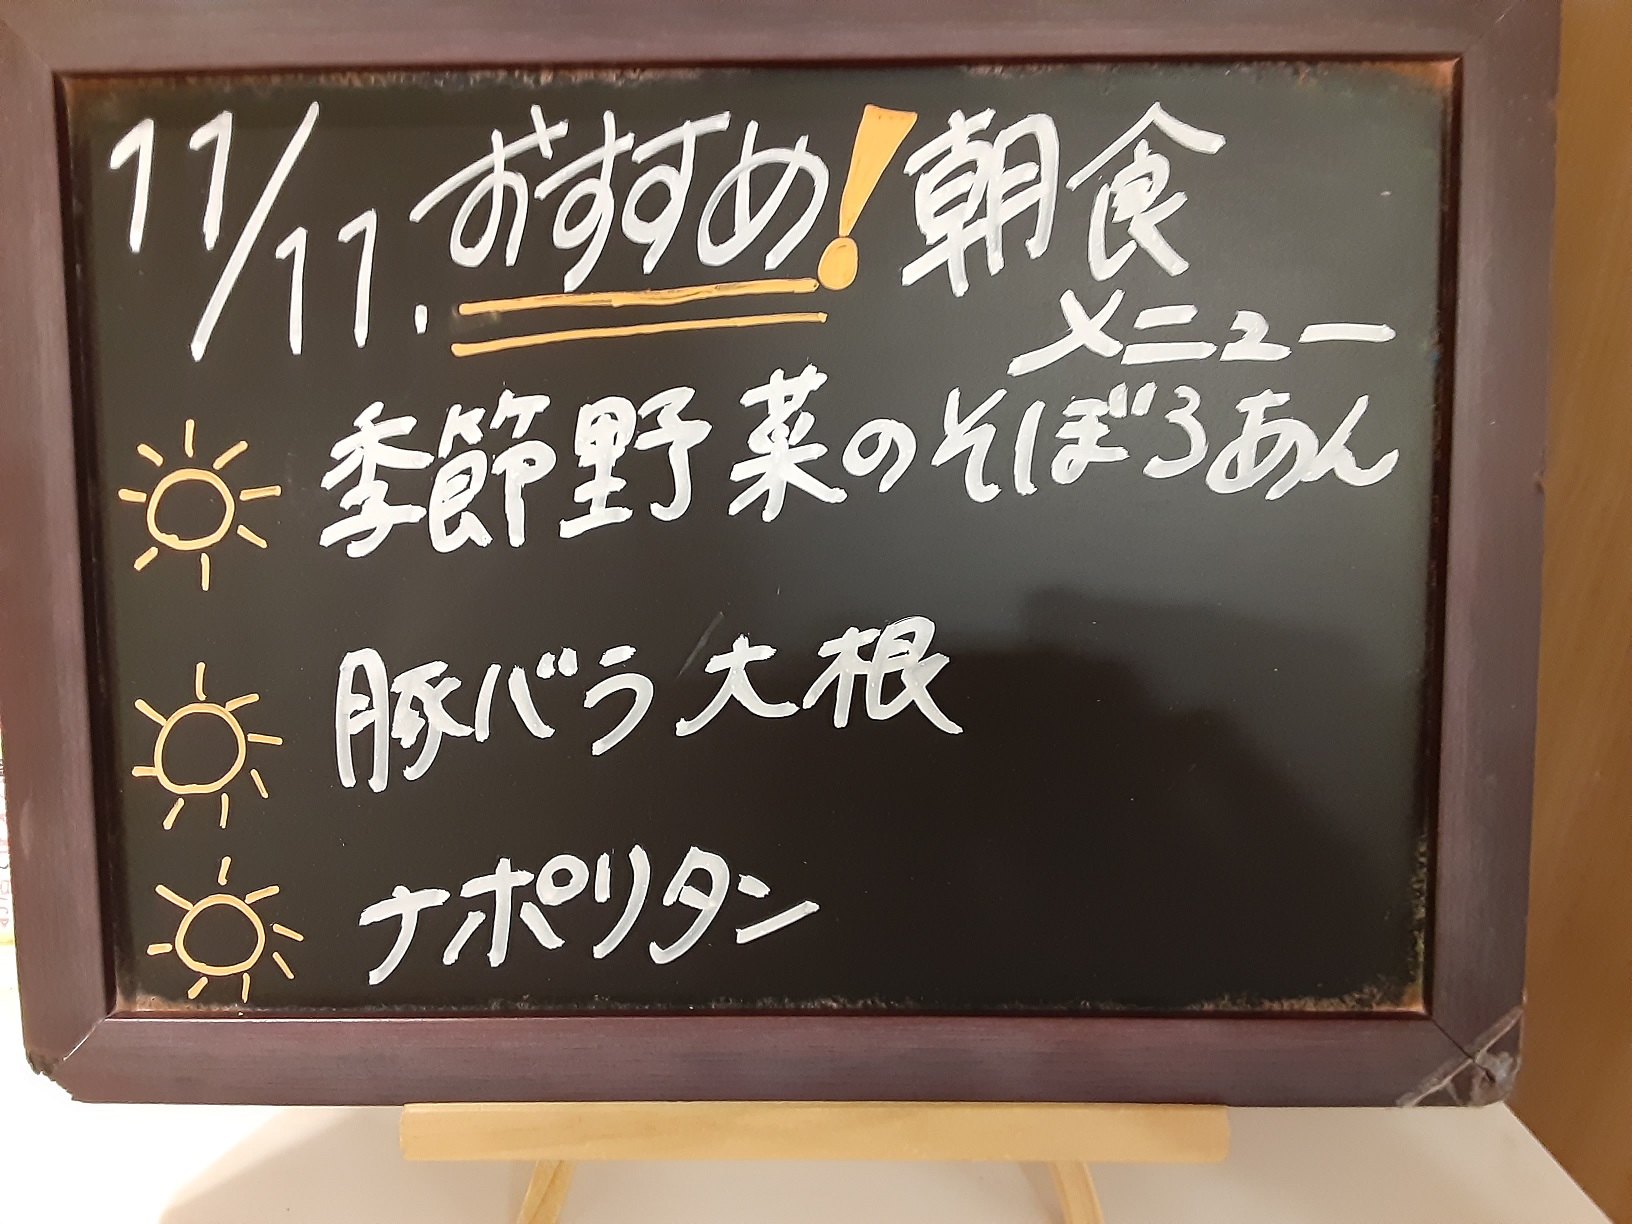 11/11.おすすめ!朝食
メニュー
季節野菜のそぼろあん
豚バラ大根
ナポリタン